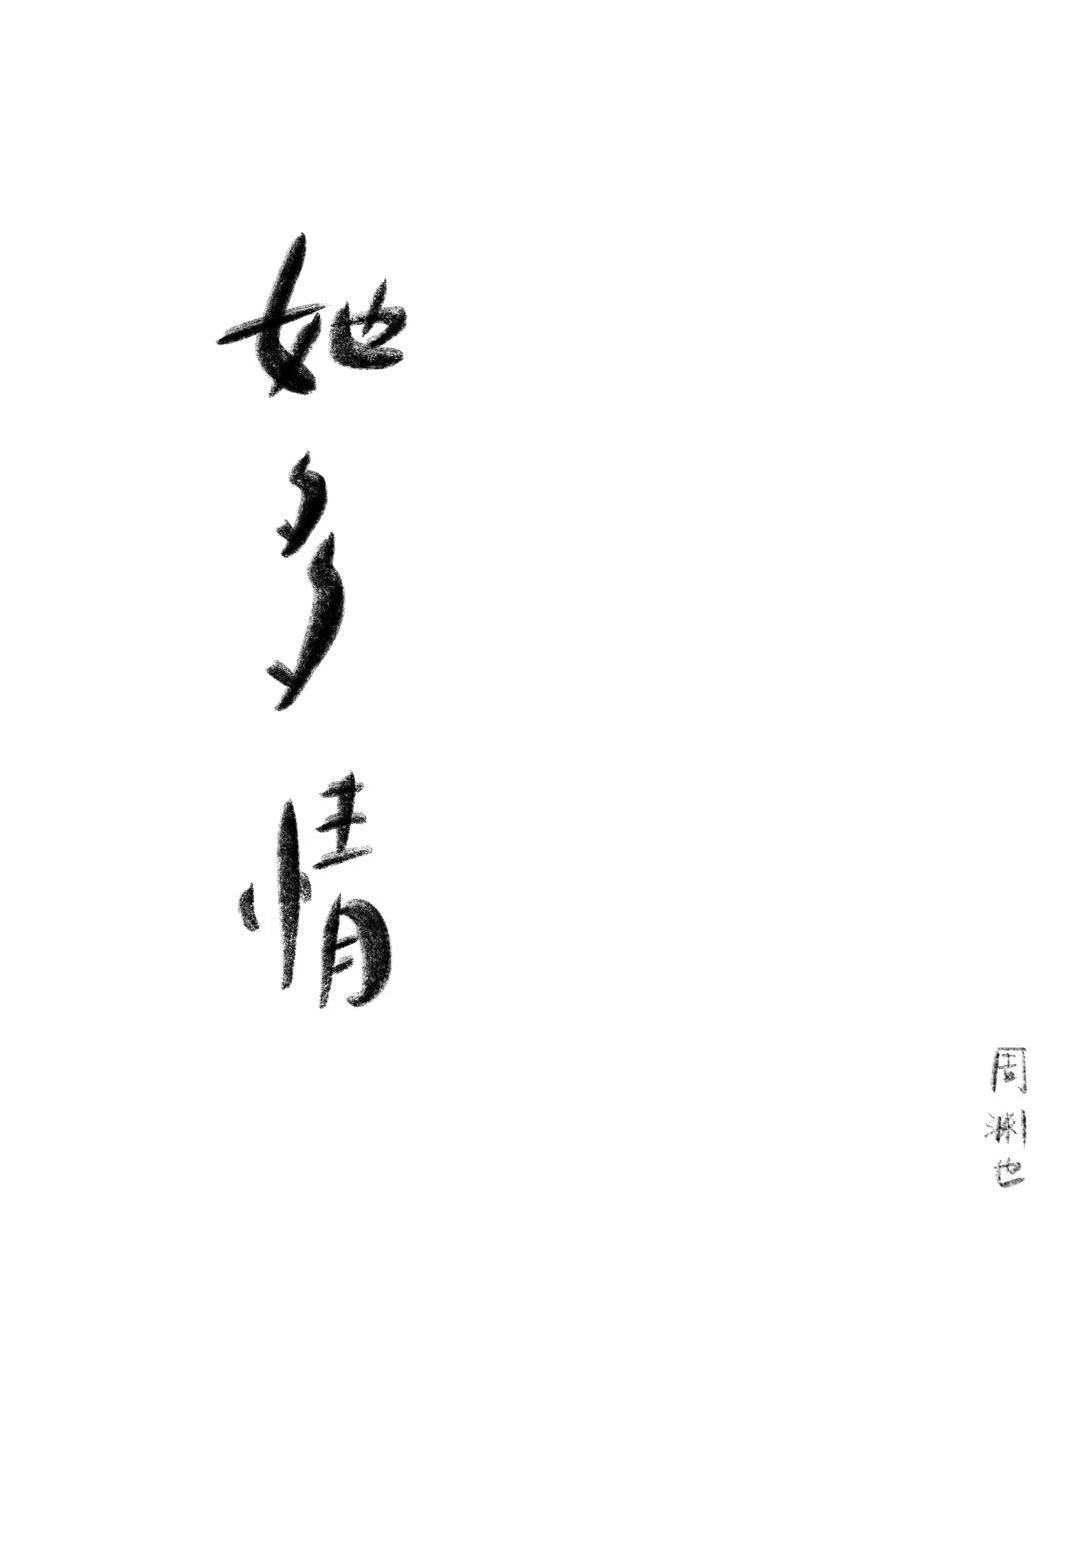 她多情
周渊也